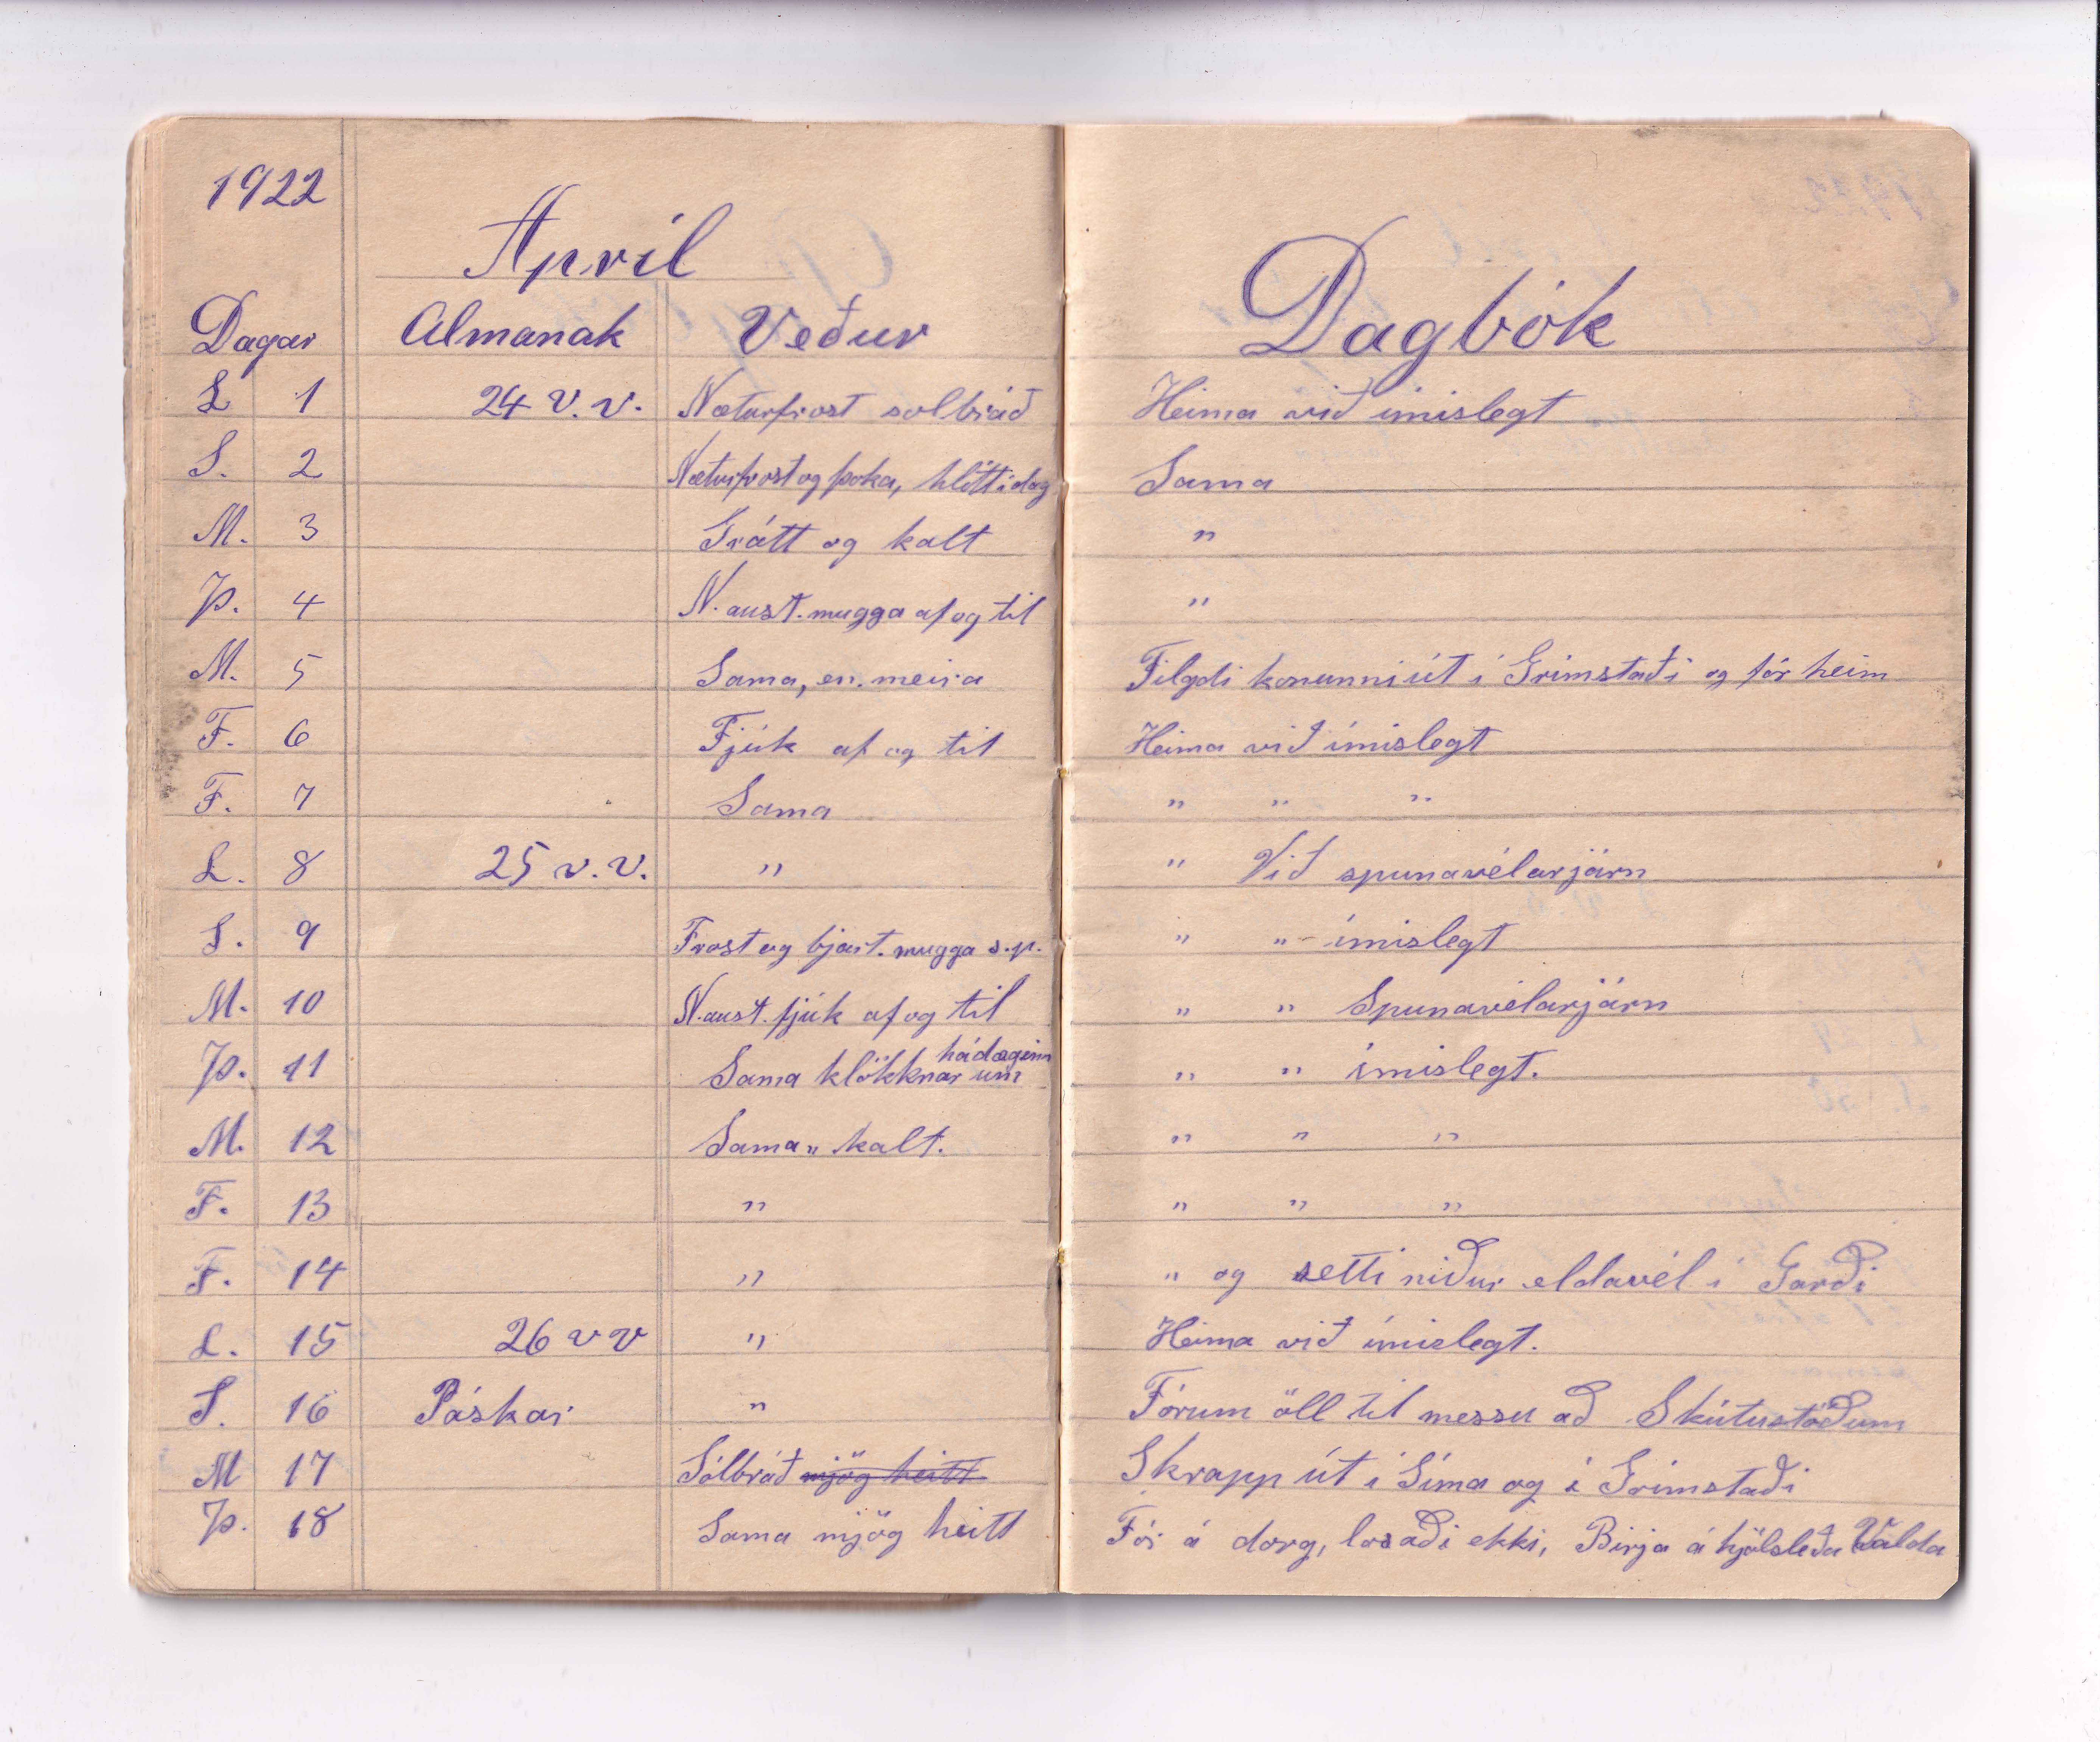 1922
Apríl
Dagar Almanak Veður Dagbók
L 1 24 v.v. Næturfrost solbráð Heima við imislegt
S. 2 Næturfrost og þoka, hlítt í dag Sama
M. 3 Grátt og kalt "
Þ. 4 N. aust. mugga af og til "
M. 5 Sama, en meira Filgdi konunni út í Grímstaði og fór heim
F. 6 Fjúk af og til Heima við ímislegt
F. 7 Sama " " "
L. 8 25 v.v. " " Við spunavélarjárn
S. 9 Frost og bjart. mugga s.p. " " ímislegt
M. 10 N.aust. fjúk af og til " " Spunavélarjárn
Þ. 11 Sama klökknar um hádaginn " " ímislegt.
M. 12 Sama " kalt. " " "
F. 13 " " " "
F. 14 " " og setti niður eldavél í Garði
L. 15 26 v v " Heima við ímislegt.
S. 16 Páskar " Fórum öll til messu að Skútustöðum
M 17 Sólbráð mjög heitt Skrapp út í Síma og í Grímstaði
Þ. 18 Sama mjög heitt Fór á dorg, losaði ekki, Birja á hjólsleða Valda